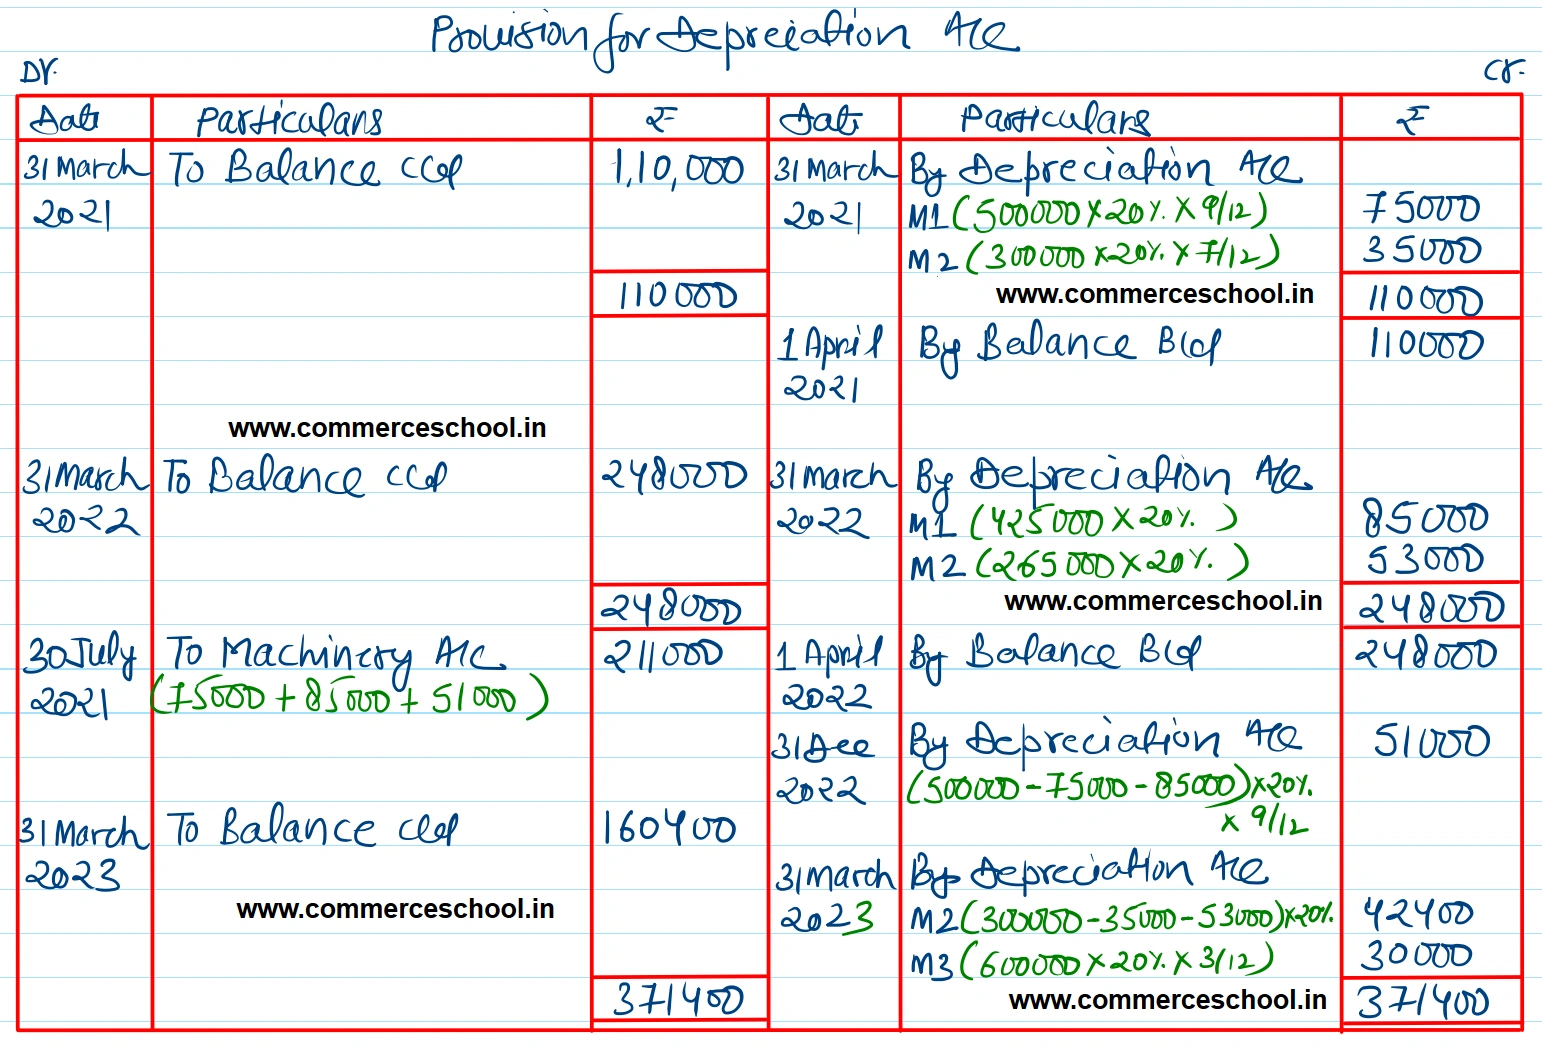 Provision for Depreciation A/c
Dr. Cr.
Date Particulars ₹ Date Particulars ₹
31 March To Balance c/d 1,10,000 31 March By Depreciation A/c
2021 2021 M1 (500000 × 20% × 9/12) 75000
M2 (300000 × 20% × 7/12) 35000
110000 www.commerceschool.in 110000
1 April By Balance B/d 110000
2021
www.commerceschool.in
31 March To Balance c/d 248000 31 March By Depreciation A/c
2022 2022 M1 (425000 × 20% ) 85000
M2 (265000 × 20% ) 53000
248000 www.commerceschool.in 248000
30 July To Machinery A/c 211000 1 April By Balance B/d 248000
2021 (75000 + 85000 + 51000) 2022
31 Dec By Depreciation A/c 51000
2022 (500000 - 75000 - 85000) × 20%
× 9/12
31 March To Balance c/d 160400
2023 31 March By Depreciation A/c
www.commerceschool.in 2023 M2 (300000 - 35000 - 53000) × 20% 42400
M3 (600000 × 20% × 3/12) 30000
371400 www.commerceschool.in 371400